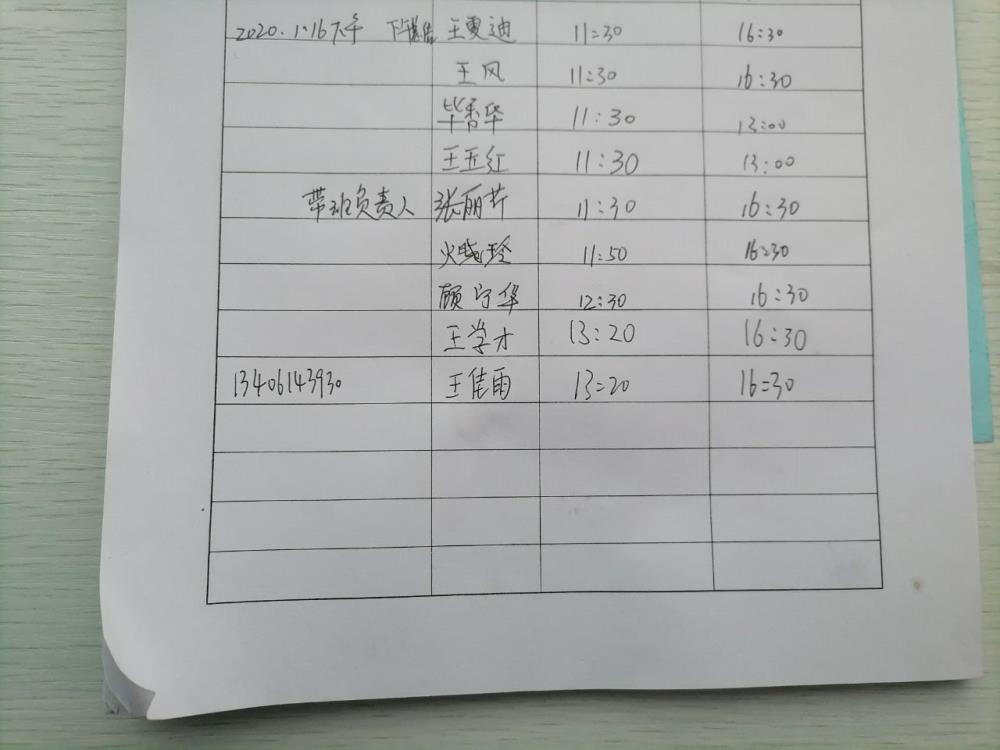 2020.1.16下午 王雯迪 11:30 16:30
王风 11:30 16:30
毕香华 11:30 13:00
王玉红 11:30 13:00
带班负责人 张丽芹 11:30 16:30
11:50 16:30
顾宁华 12:30 16:30
王学才 13:20 16:30
13406143930 王佳雨 13:20 16:30